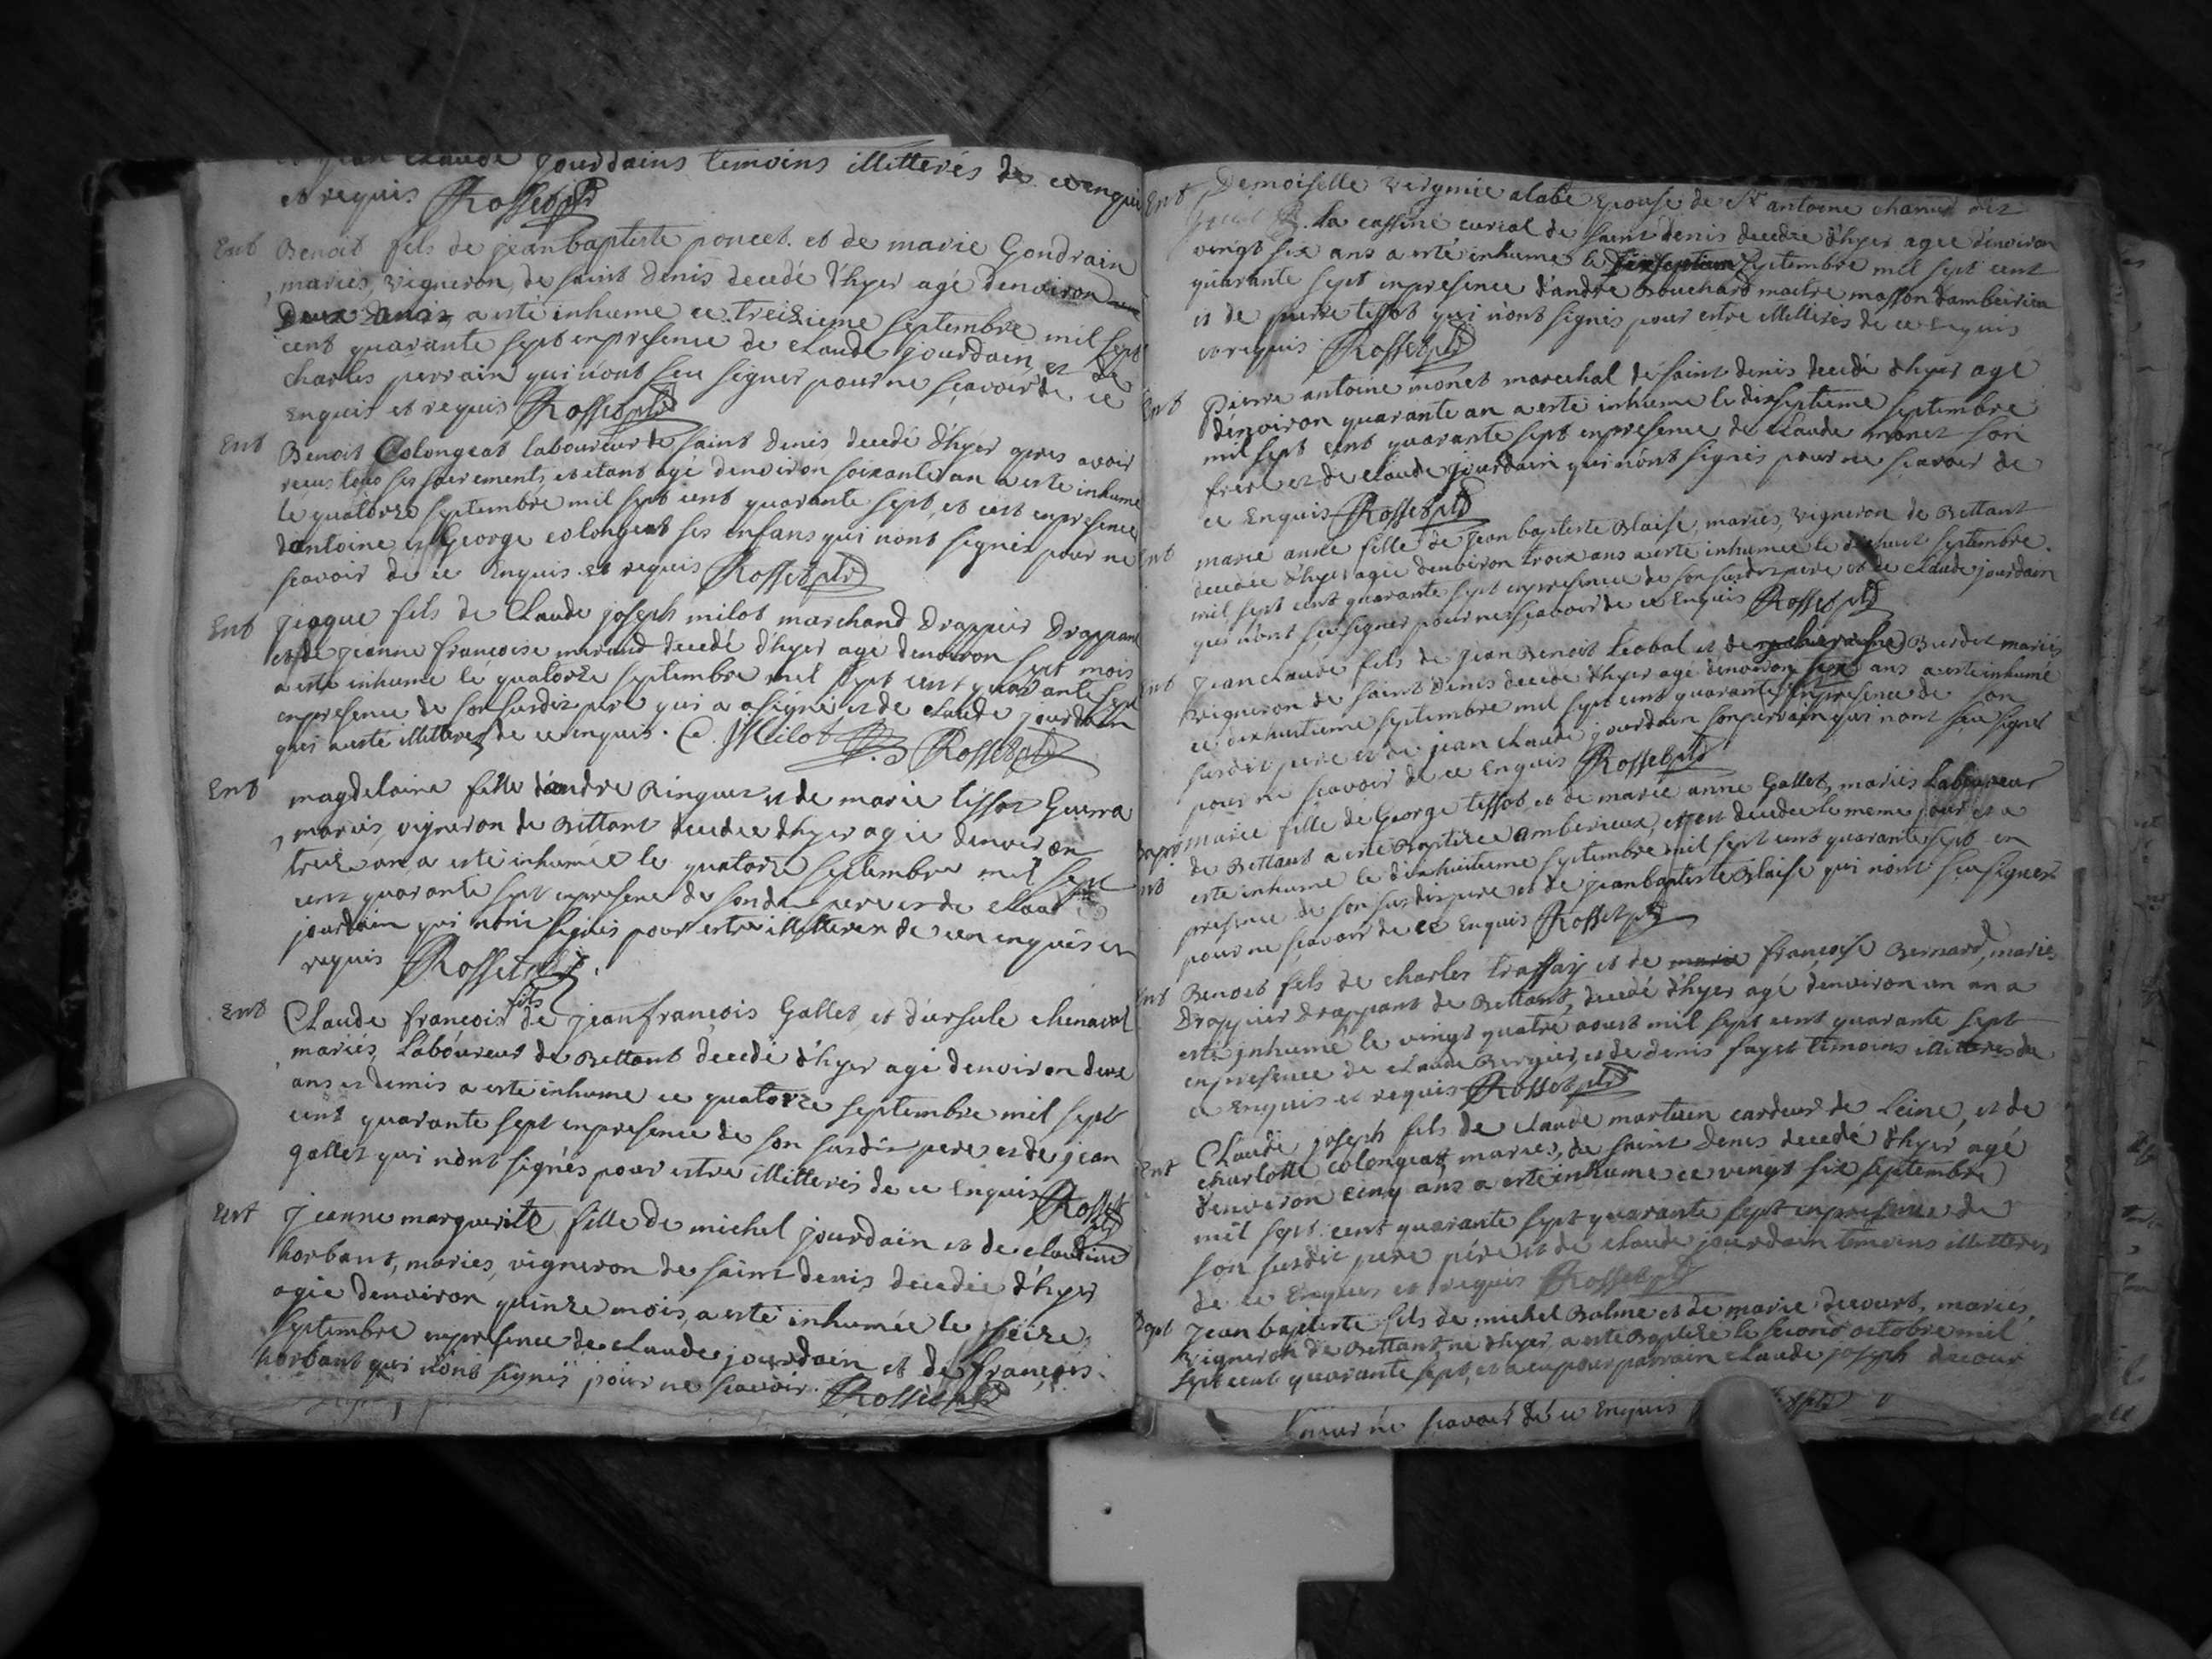 et jean claude jourdains temoins illitterés de ce enquis
et requis Rosset ptr
Ent Benoit fils de jean baptiste poncet et de marie Gondrain
mariés, vigneron, de saint denis decedé d'hyer agé denviron
a esté inhumé ce treizieme septembre mil sept
cent quarante sept en presence de claude jourdain et de
charles perrain qui n'ont sceu signer pour ne sçavoir de ce
Enquis et requis Rosset ptr
Ent Benoit Colongeat laboureur de saint denis decedé d'hyer apres avoir
reçus tous ses sacrements, et etant agé denviron soixante an a esté inhumé
le quatorze septembre mil sept cent quarante sept, et ce en presence
dantoine et George colongeat ses enfans qui n'ont signés pour ne
scavoir de ce Enquis et requis Rosset ptr
Ent jaque fils de Claude joseph milot marchand drappier drappant
et de jeanne francoise miraud decedé d'hyer agé denviron sept mois
a esté inhumé le quatorze septembre mil sept cent quarante sept
en presence de son susdit pere qui a signé et de claude jourdain
qui a esté illitteres de ce enquis. C. J Milot Rosset ptr
Ent magdelaine fille dandre Ringuet et de marie tissot Guerra
mariés, vigneron de Bettant decedee d'hyer agee denviron
treize an a esté inhumée le quatorze septembre mil sept
cent quarante sept en presence de son dit pere et de claude
jourdain qui n'ont signés pour estre illitteres de ce enquis et
requis Rosset ptr
Ent Claude francois fils de jean francois Gallet et d'ursule chenaval
mariés, laboureur de Bettant decedé d'hyer agé denviron deux
ans et demis a esté inhumé ce quatorze septembre mil sept
cent quarante sept en presence de son susdit pere et de jean
gallet qui n'ont signés pour estre illitterés de ce Enquis Rosset ptr
Ent jeanne marguerite fille de michel jourdain et de claudine
horbant, mariés, vigneron de saint denis decedée d'hyer
agée denviron quinze mois, a esté inhumée le seize
septembre en presence de claude jourdain et de françois
horbant qui n'ont signés pour ne scavoir. Rosset ptr
Ent Demoiselle virginie alabe Epouse de Sr antoine chanut
la cassine curial de saint denis decedee d'hyer agee d'environ
vingt six ans a esté inhumé le septembre mil sept cent
quarante sept en presence d'andré Bouchard maitre masson dambeirieu
et de pierre tissot qui n'ont signés pour estre illitteres de ce enquis
et requis Rosset ptr
Ent pierre antoine monet marechal de saint denis decedé d'hyer agé
d'environ quarante an a esté inhumé le dixseptieme septembre
mil sept cent quarante sept en presence de claude monet son
frere et de claude jourdain qui n'ont signés pour ne scavoir de
ce Enquis Rosset ptr
Ent marie année fille de jean baptiste Blaise, mariés, vigneron de Bettant
decedée d'hyer agée denviron trois ans a esté inhumée le dixhuit septembre
mil sept cent quarante sept en presence de son susdit pere et de claude jourdain
qui n'ont sceu signer pour ne scavoir de ce Enquis Rosset ptr
Ent jean claude fils de jean Benoit Leobal et de Burdet mariés
vigneron de saint denis decedé d'hyer agé denviron ans a esté inhumé
ce dixhuitieme septembre mil sept cent quarante sept en presence de son
susdit pere et de jean claude jourdain son perrain qui n'ont sceu signer
pour ne scavoir de ce Enquis Rosset ptr
Bapt marie fille de George tissot et de marie anne Gallet, mariés Laboureur
Ent de Bettant a esté Baptizée amberieux, et est decedee le meme jour et a
esté inhumé le dixhuitieme septembre mil sept cent quarante sept en
presence de son susdit pere et de jean baptiste Blaise qui n'ont sceu signer
pour ne scavoir de ce Enquis Rosset ptr
Ent Benoit fils de charles traffay et de marie françoise Bernard, mariés
Drappier drappant de Bettant, decedé d'hyer agé denviron un an a
esté inhumé le vingt quatre aoust mil sept cent quarante sept
en presence de claude Bergier, et de denis fayet temoins illitterés de
ce Enquis et requis Rosset ptr
Ent Claude joseph fils de claude martuen cardeur de Leine, et de
charlotte colongeat, mariés, de saint denis decedé d'hyer agé
denviron cinq ans a esté inhumé ce vingt six septembre
mil sept cent quarante sept quarante sept en presence de
son susdit pere pére et de claude jourdain temoins illitteres
de ce Enquis et requis Rosset ptr
Bapt jean baptiste fils de michel Balme et de marie decourt, mariés,
vigneron de Bettant, né d'hyer, a esté Baptizé le second octobre mil
sept cent quarante sept, et a eu pour parrain claude joseph decour
pour ne scavoir de ce Enquis